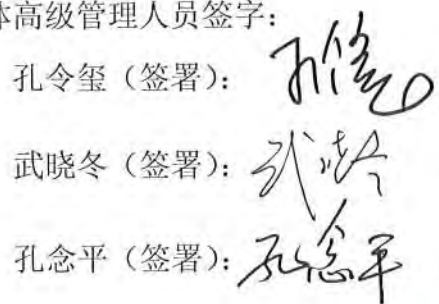 体高级管理人员签字：
孔令玺（签署）：
武晓冬（签署）：武晓冬
孔念平（签署）：孔念平